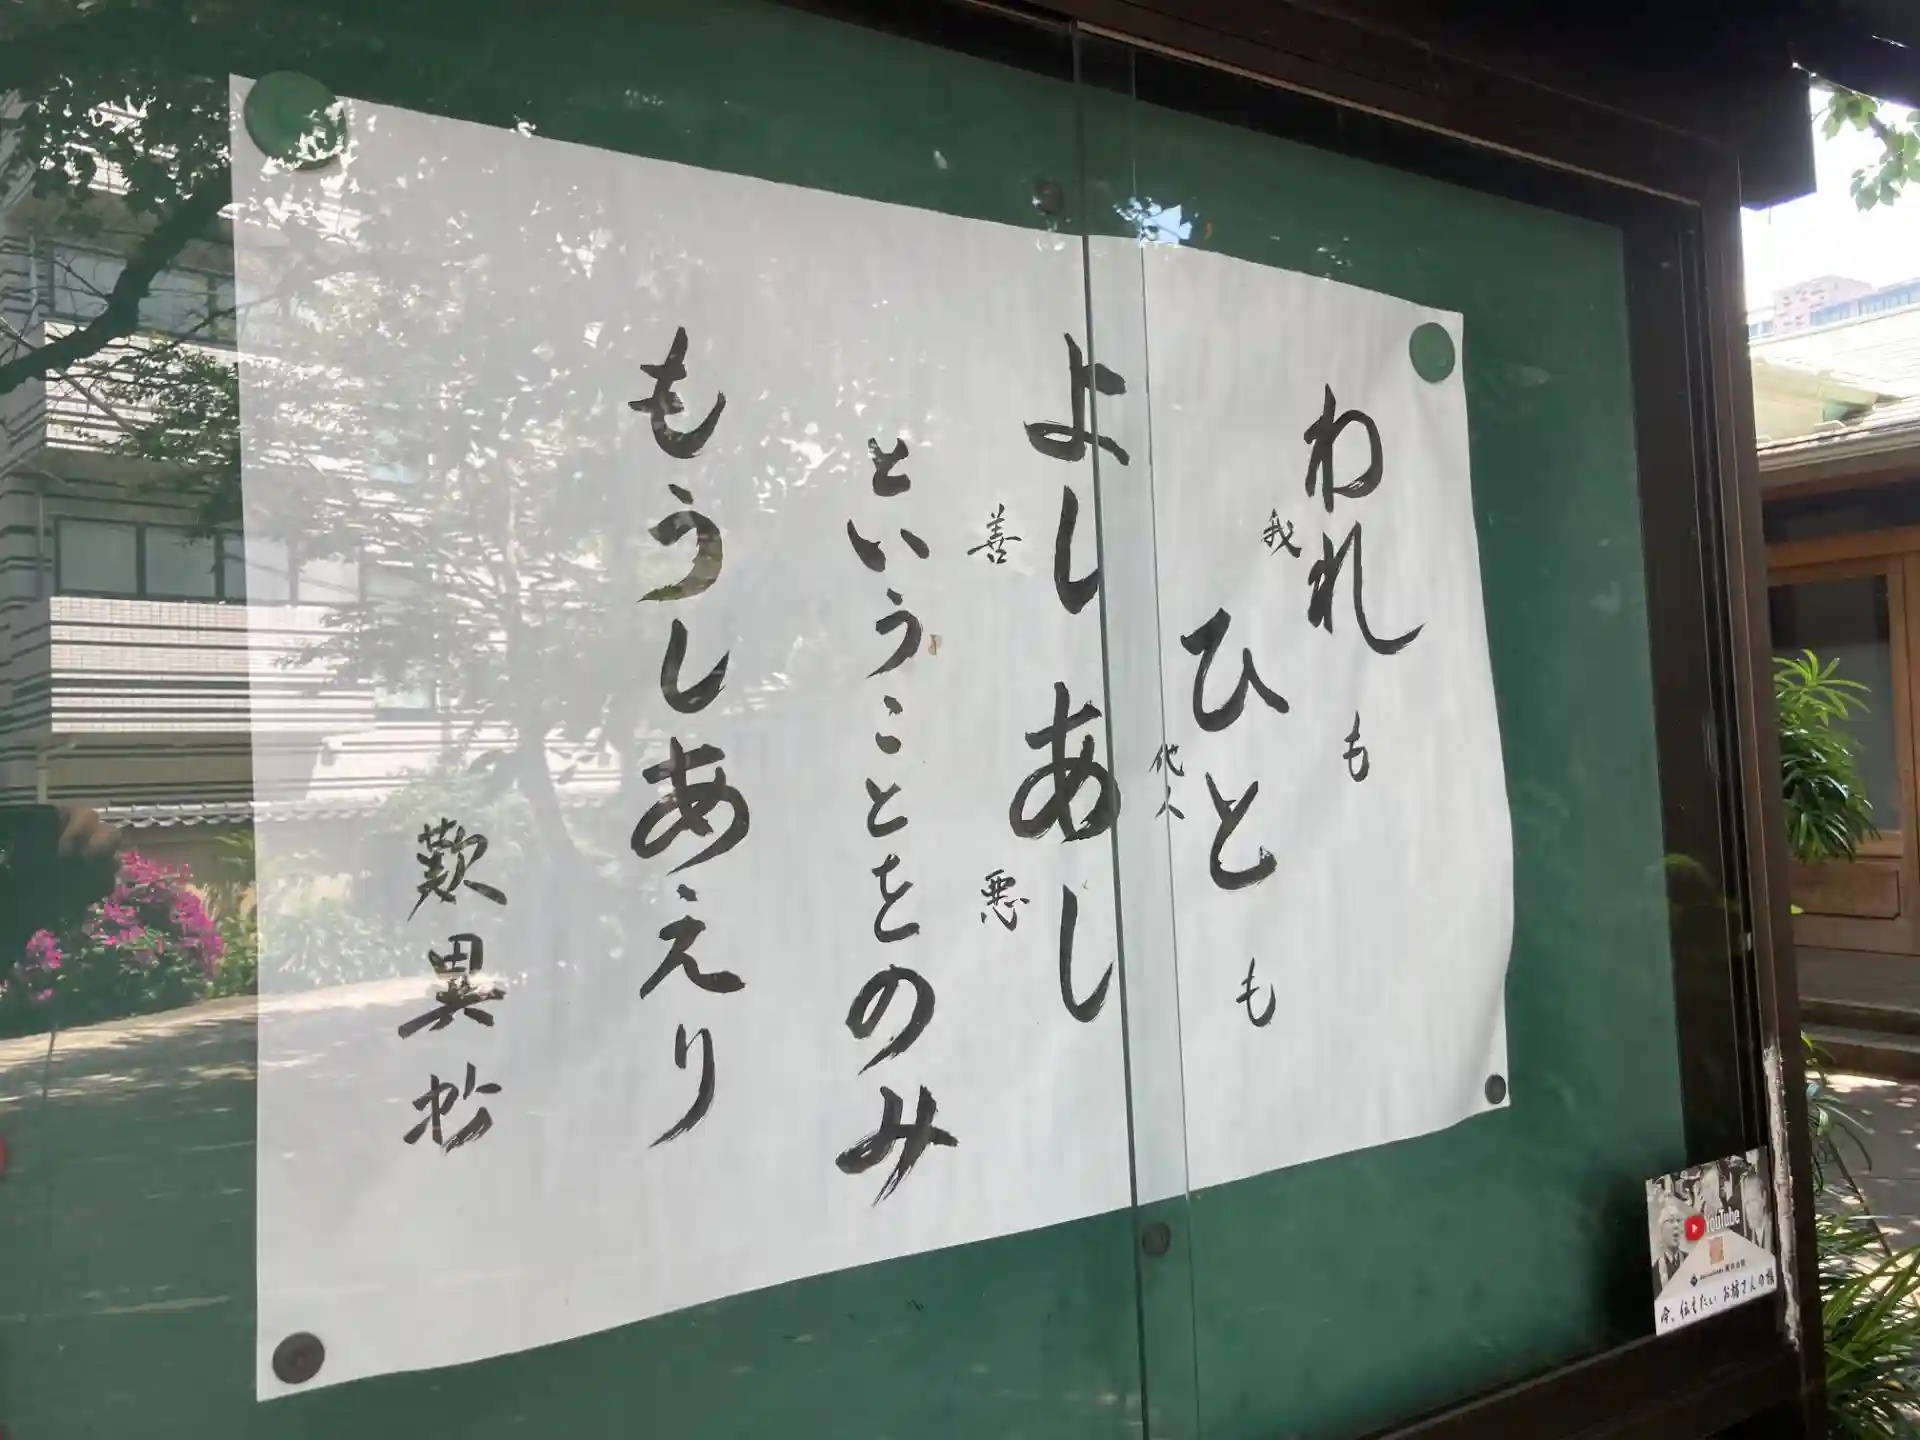 われも
我
ひとも
他人
よしあし
善
悪
ということをのみ
もうしあえり
歎異抄
YouTube
今、伝えたい お坊さんの話